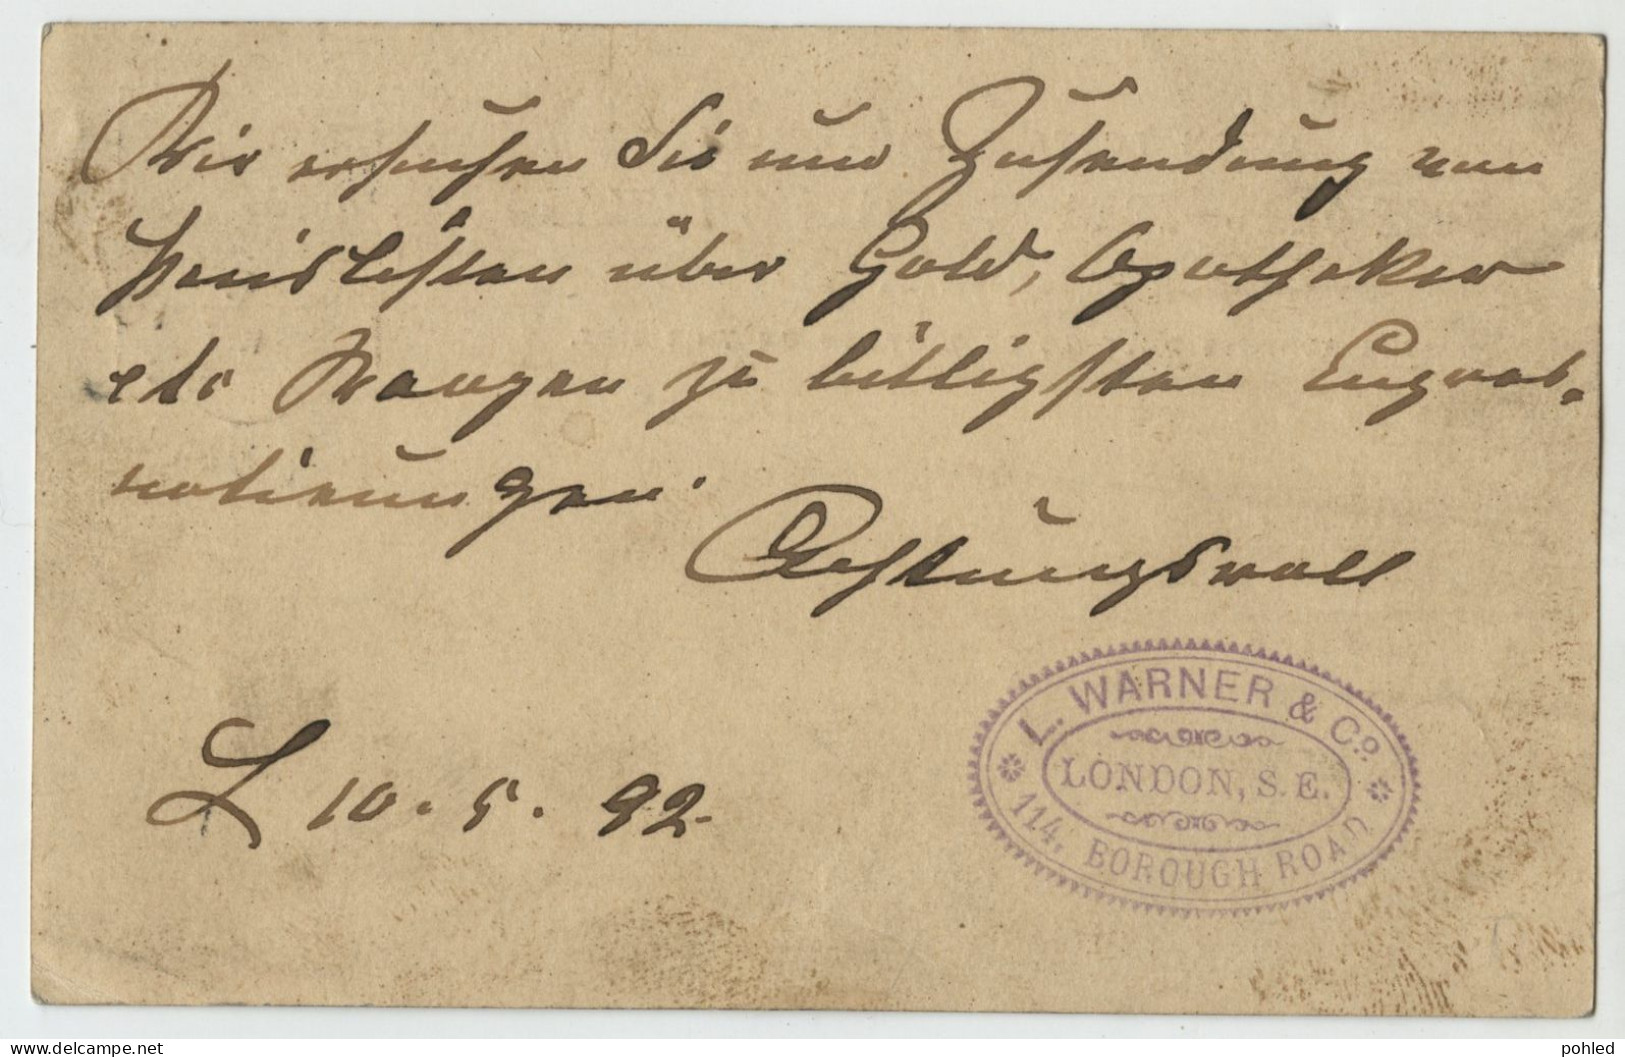 Wir ersuchen Sie um Zusendung von
Preislisten über Gold, Apotheker
etc Waagen zu billigsten Engros-
notierungen.
Achtungsvoll
L 10. 5. 92.
L. WARNER & Co.
LONDON, S. E.
114, BOROUGH ROAD
delcampe.net
pohled